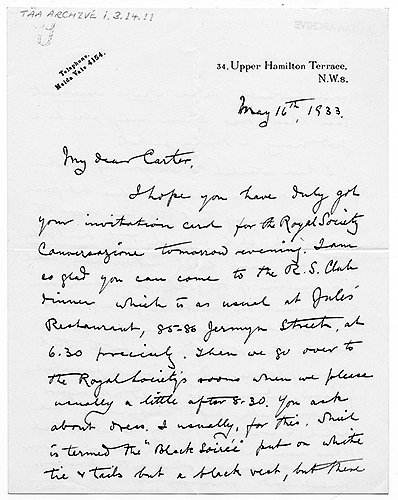 TAA ARCHIVE i.3.14.11
Telephone.
Maida Vale 4154.
34, Upper Hamilton Terrace,
N.W.8.
May 16th, 1933.
My dear Carter,
I hope you have duly got
your invitation card for the Royal Society
Conversazione tomorrow evening. I am
so glad you can come to the R.S. Club
dinner which is as usual at Jules'
Restaurant, 85-86 Jermyn Street, at
6.30 precisely. Then we go over to
the Royal Society's rooms when we please
usually a little after 8.30. You ask
about dress. I usually, for this, which
is termed the "Black Soirée" put on white
tie & tails but a black vest, but there